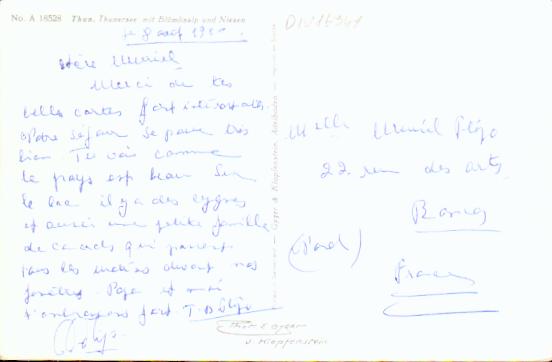 No. A 18528 Thun, Thunersee mit Blümlisalp und Niesen
le 8 août 19
Chère Muriel
Merci de tes
belles cartes fort intéressantes.
Notre séjour se passe très
bien. Tu vois comme
le pays est beau. Sur
le lac il y a des cygnes
et aussi une petite famille
de canards qui passent
tous les matins devant nos
fenêtres. Papa et moi
t'embrassons fort.
DIV16941
Melle Muriel
22 rue des arts
(Nord)
France
Gyger & Klopfenstein, Adelboden
Phot. E. Gyger
u. Klopfenstein